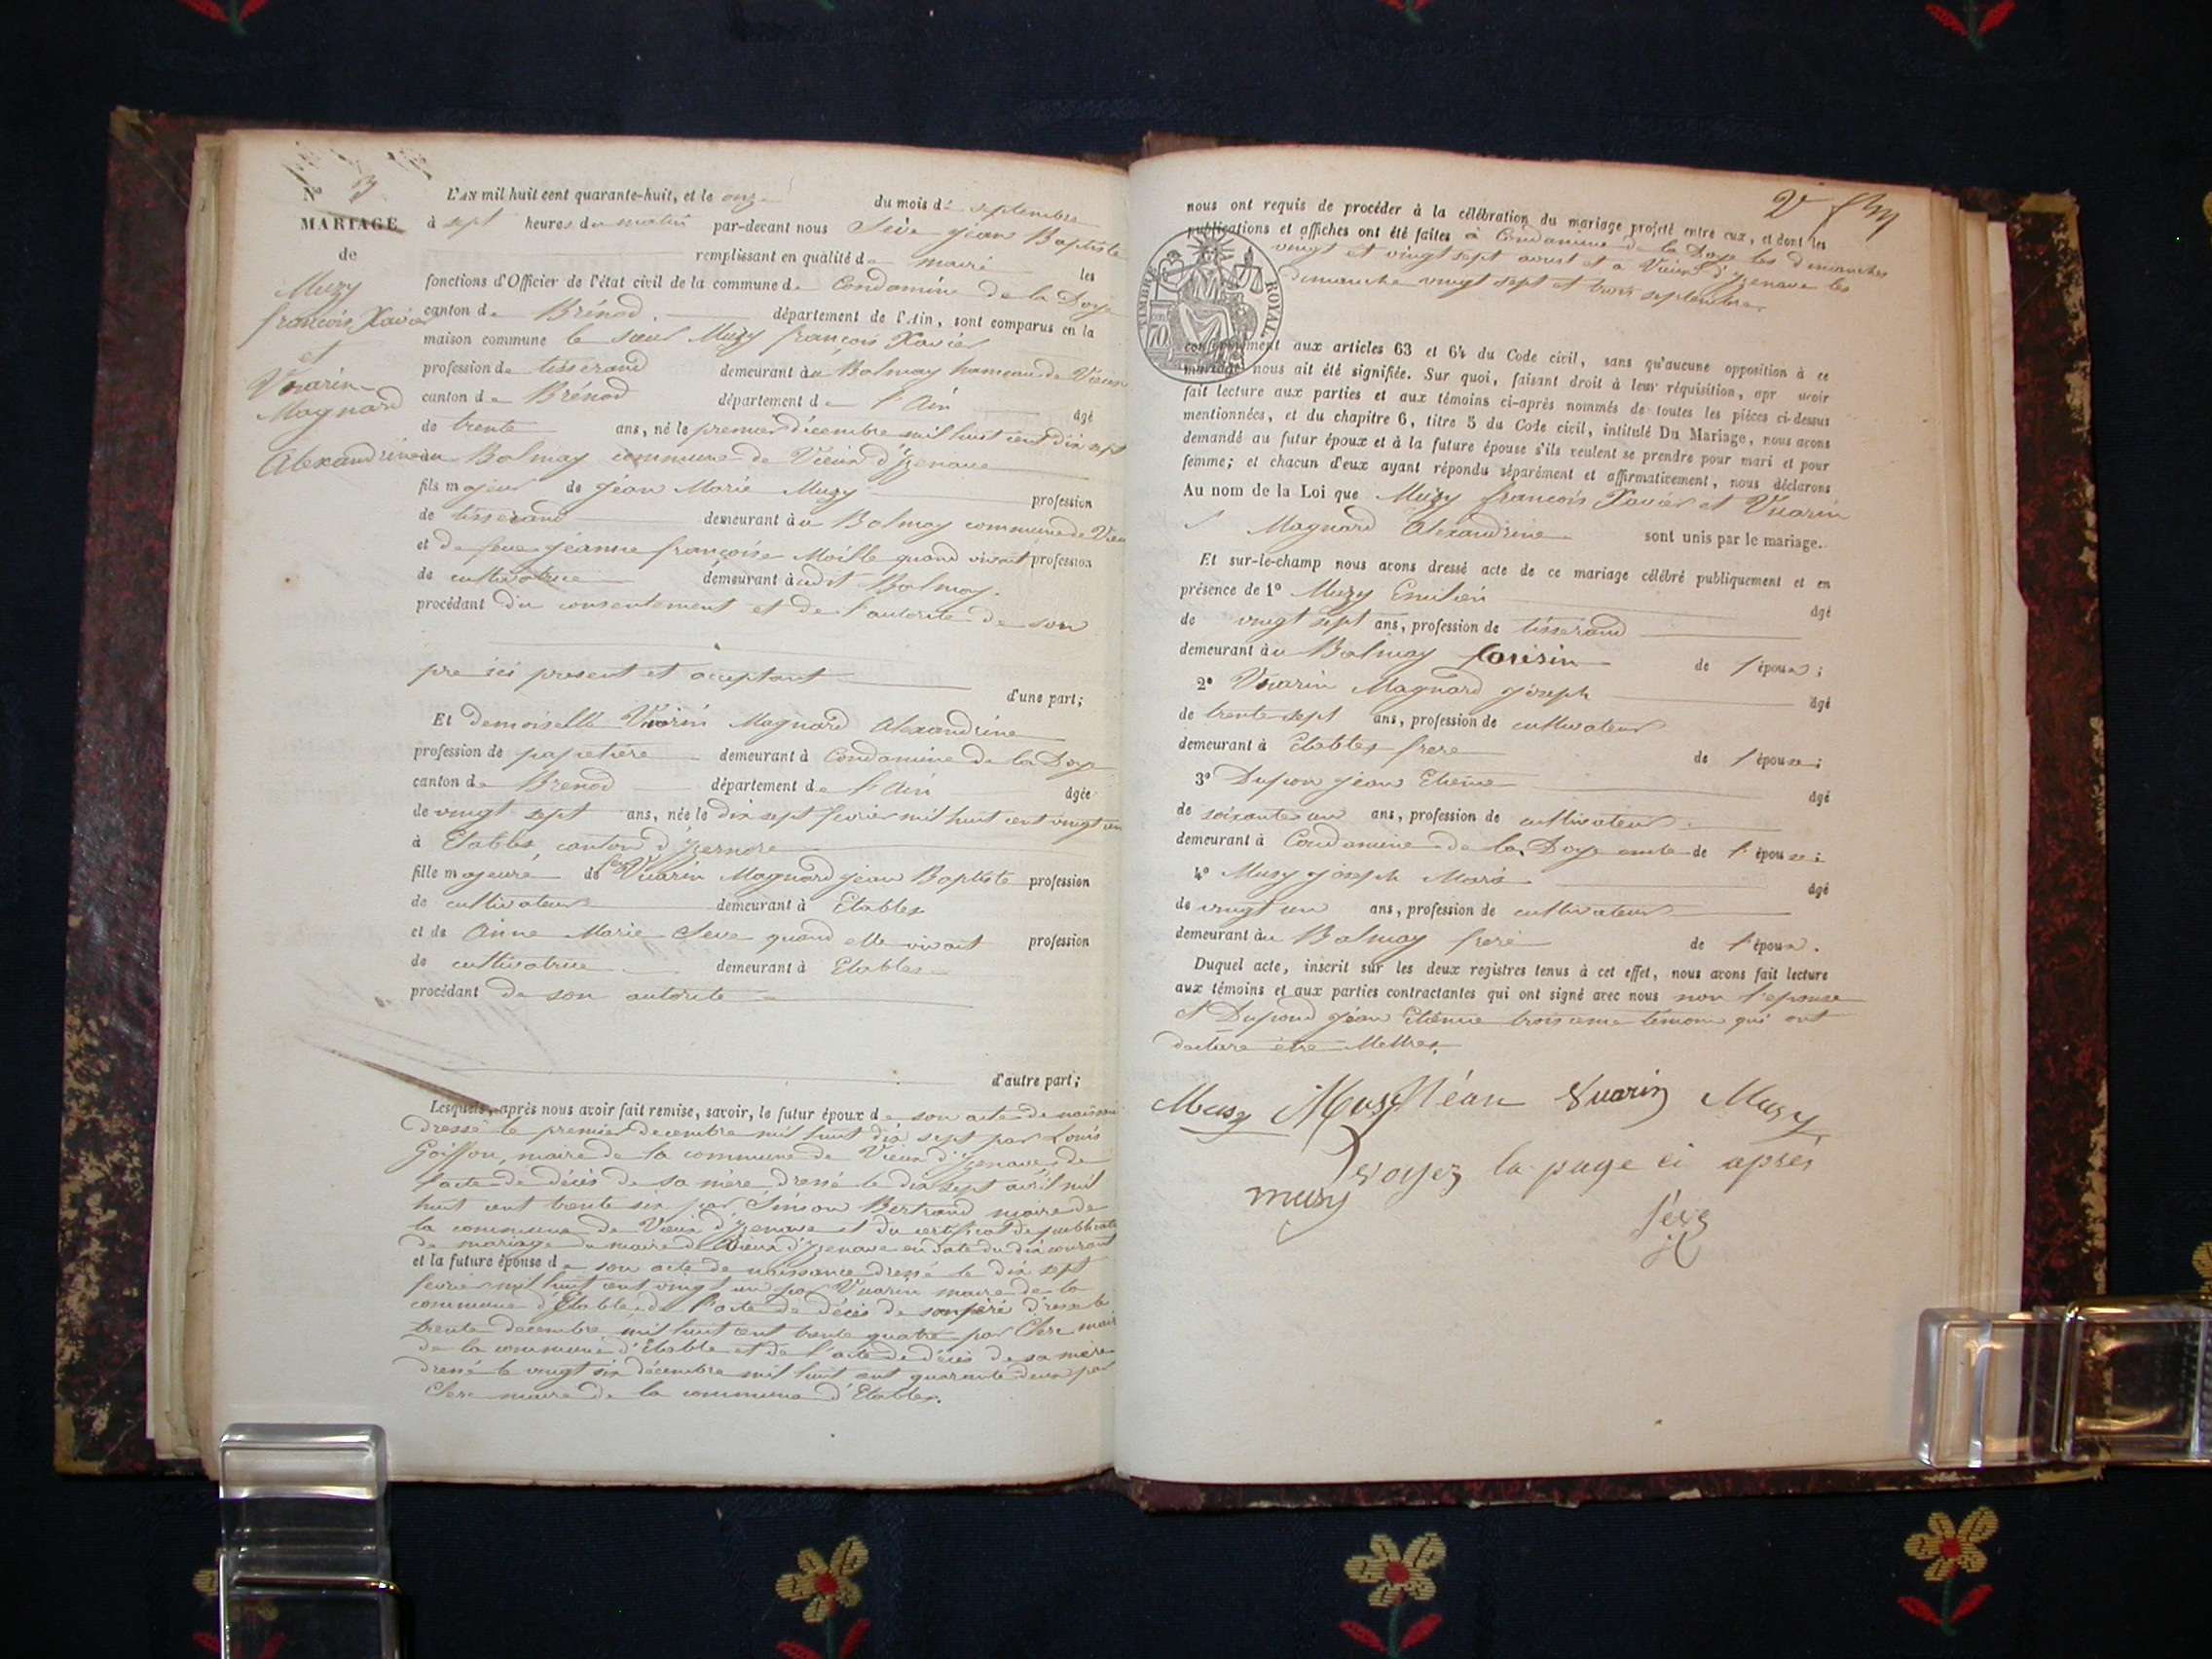 N° 3
MARIAGE
de
Muzy
françois Xavier
et
Vuarin
Magnard
Alexandrine
L'AN mil huit cent quarante-huit, et le onze du mois de septembre
à sept heures du matin par-devant nous Sève jéan Baptiste
remplissant en qualité de maire les
fonctions d'Officier de l'état civil de la commune de Condamine de la Doye
canton de Brénod département de l'Ain, sont comparus en la
maison commune le sieur Muzy françois Xavier
profession de tisserand demeurant au Balmay hameau de Vieux
canton de Brénod département de l'Ain âgé
de trente ans, né le premier décembre mil huit cent dix sept
au Balmay commune de Vieux d'Izenave
fils majeur de jéan Marie Muzy profession
de tisserand demeurant au Balmay commune de Vieux
et de feue jéanne françoise Moille quand vivait profession
de cultivatrice demeurant audit Balmay.
procédant du consentement et de l'autorité de son
pre ici present et acceptant d'une part;
Et demoisellé Vuarin Magnard Alexandrine
profession de papetière demeurant à Condamine de la Doye
canton de Brenod département de l'Ain âgée
de vingt sept ans, née le dix sept fevrier mil huit cent vingt un
à Etables canton d'Izernore
fille majeure de feu Vuarin Magnard jean Baptiste profession
de cultivateur demeurant à Etables
et de Anne Marie Seve quand elle vivait profession
de cultivatrice demeurant à Etables
procédant de son autorite
d'autre part;
Lesquels, après nous avoir fait remise, savoir, le futur époux de son acte de naissance
dressé le premier decembre mil huit dix sept par Louis
Goiffon, maire de la commune de Vieux d'Izenave, de
l'acte de décès de sa mère dressé le dix sept avril mil
huit cent trente six par Simson Bertrand maire de
la commune de Vieux d'Izenave et du certificat de publicat
de mariage du maire de Vieux d'Izenave en daté du dix courant
et la future épouse de son acte de naissance dressé le dix sept
fevrier mil huit cent vingt un par Vuarin maire de la
commune d'Etables de l'acte de décès de son péré dressé le
trente decembre mil huit cent trente quatre par Clerc maire
de la commune d'Etable et de l'acte de décès de sa mère
dressé le vingt six décembre mil huit cent quarante deux par
Clerc maire de la commune d'Etables.
nous ont requis de procéder à la célébration du mariage projeté entre eux, et dont les
publications et affiches ont été faites à Condamine de la Doye les dimanches
vingt et vingt sept aoust et a Vieux d'Izenave les
dimanche vingt sept et trois septembre.
TIMBRE ROYAL
conformément aux articles 63 et 64 du Code civil, sans qu'aucune opposition à ce
mariage nous ait été signifiée. Sur quoi, faisant droit à leur réquisition, apr avoir
fait lecture aux parties et aux témoins ci-après nommés de toutes les pièces ci-dessus
mentionnées, et du chapitre 6, titre 5 du Code civil, intitulé Du Mariage, nous avons
demandé au futur époux et à la future épouse s'ils veulent se prendre pour mari et pour
femme; et chacun d'eux ayant répondu séparément et affirmativement, nous déclarons
Au nom de la Loi que Muzy françois Xavier et Vuarin
Magnard Alexandrine sont unis par le mariage.
Et sur-le-champ nous avons dressé acte de ce mariage célébré publiquement et en
présence de 1° Muzy Emilien âgé
de vingt sept ans, profession de tisserand
demeurant au Balmay cousin de l'époux;
2° Vuarin Magnard joseph âgé
de trente sept ans, profession de cultivateur
demeurant à Etables frere de l'épouse;
3° Dupon jéan Etiene âgé
de soixante un ans, profession de cultivateur
demeurant à Condamine de la Doye oncle de l'épouse;
4° Muzy joseph Marie âgé
de vingt un ans, profession de cultivateur
demeurant au Balmay freré de l'époux.
Duquel acte, inscrit sur les deux registres tenus à cet effet, nous avons fait lecture
aux témoins et aux parties contractantes qui ont signé avec nous non l'epouse
et Dupond jéan Etiènne troisieme témoin qui ont
declare être illettres.
Muzy Muzy jéan Vuarin Muzy
voyez la page ci après
muzy
Sève